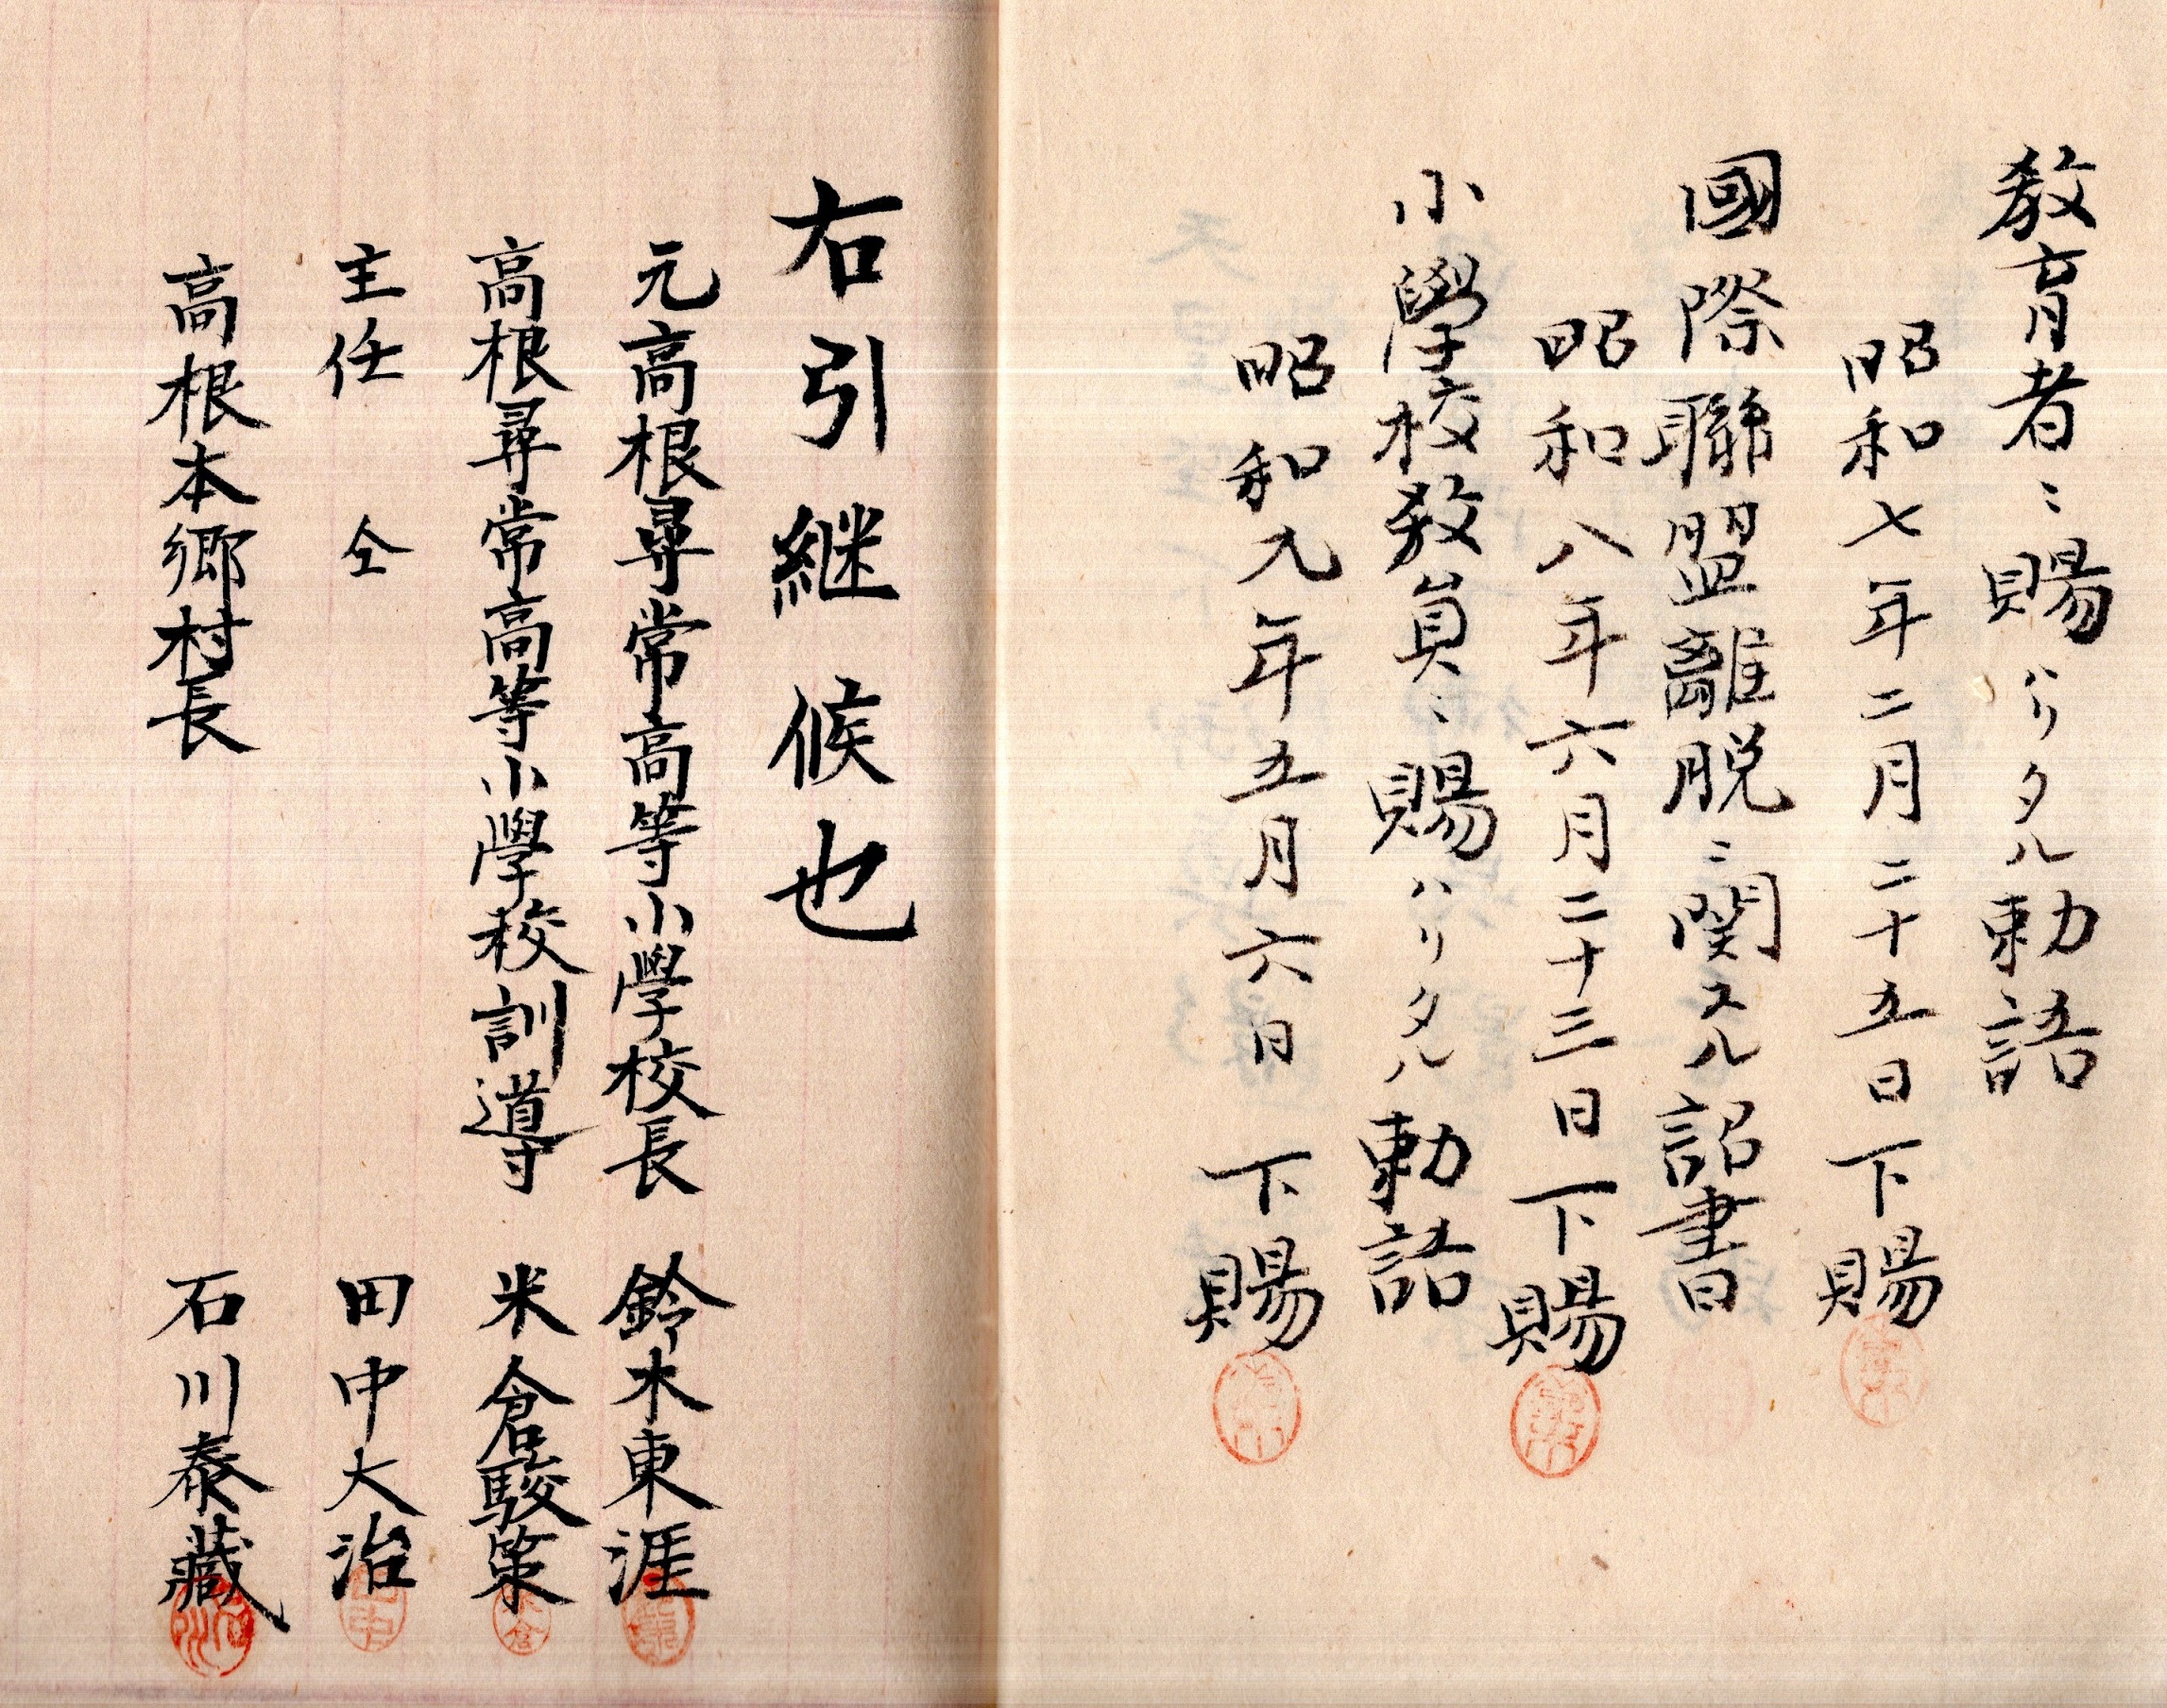 教育者ニ賜ハリタル勅語
昭和七年二月二十五日下賜
國際聯盟離脱ニ関スル詔書
昭和八年六月二十三日下賜
小學校教員ニ賜ハリタル勅語
昭和九年五月六日 下賜
右引継候也
元高根尋常高等小學校長 鈴木東涯
高根尋常高等小學校訓導 米倉駿策
主任 仝 田中大治
高根本郷村長 石川泰藏